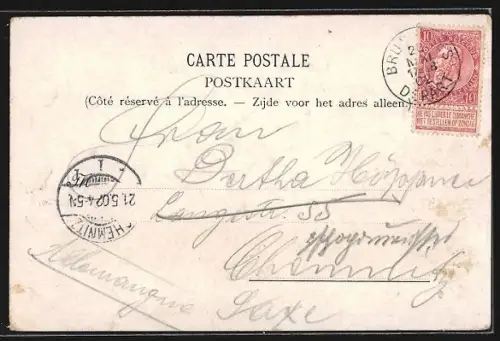 CARTE POSTALE
POSTKAART
(Côté réservé à l'adresse. — Zijde voor het adres alleen)
10 10
NE PAS LIVRER LE DIMANCHE
NIET BESTELLEN OP ZONDAG
DEPART
Frau
Bertha Höppner
Langestr. 55
Chemnitz
Saxe
Allemagne
CHEMNITZ
21.5.02.4-5N